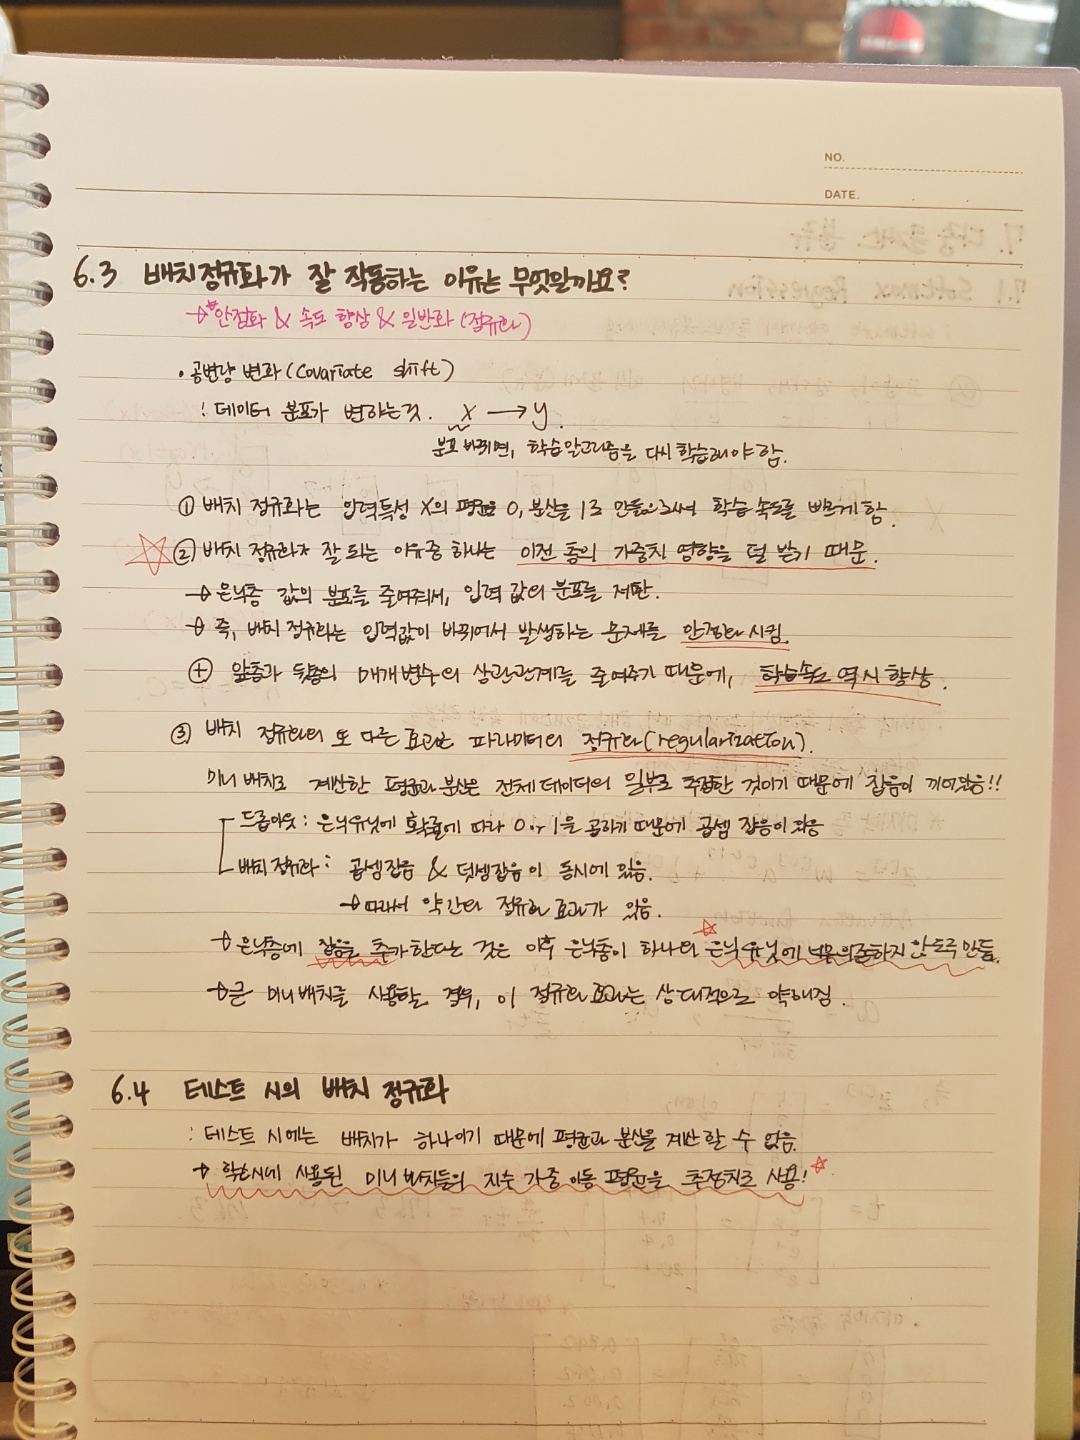 NO.
DATE.
6.3 배치정규화가 잘 작동하는 이유는 무엇일까요?
→ *안정화 & 속도 향상 & 일반화 (정규화)
• 공변량 변화 (Covariate shift)
: 데이터 분포가 변하는 것. X → y
분포 바뀌면, 학습 알고리즘을 다시 학습해야 함.
① 배치 정규화는 입력특성 X의 평균을 0, 분산을 1로 만듦으로써 학습 속도를 빠르게 함.
☆ ② 배치 정규화가 잘 되는 이유중 하나는 이전 층의 가중치 영향을 덜 받기 때문.
→ 은닉층 값의 분포를 줄여줘서, 입력 값의 분포를 제한.
→ 즉, 배치 정규화는 입력값이 바뀌어서 발생하는 문제를 안정화 시킴.
⊕ 앞층과 뒷층의 매개변수의 상관관계를 줄여주기 때문에, 학습속도 역시 향상.
③ 배치 정규화의 또 다른 효과는 파라미터의 정규화(regularization).
미니 배치로 계산한 평균과 분산은 전체 데이터의 일부로 추정한 것이기 때문에 잡음이 끼어있음!!
드롭아웃 : 은닉유닛에 확률에 따라 0 or 1을 곱하기 때문에 곱셈 잡음이 있음
배치 정규화 : 곱셈잡음 & 덧셈잡음이 동시에 있음.
→ 따라서 약간의 정규화 효과가 있음.
→ 은닉층에 잡음을 추가한다는 것은 이후 은닉층이 하나의 ☆은닉 유닛에 너무 의존하지 않도록 만듦.
→ 큰 미니배치를 사용할 경우, 이 정규화 효과는 상대적으로 약해짐.
6.4 테스트 시의 배치 정규화
: 테스트 시에는 배치가 하나이기 때문에 평균과 분산을 계산할 수 없음.
→ 학습시에 사용된 미니 배치들의 지수 가중 이동 평균을 추정치로 사용! ☆